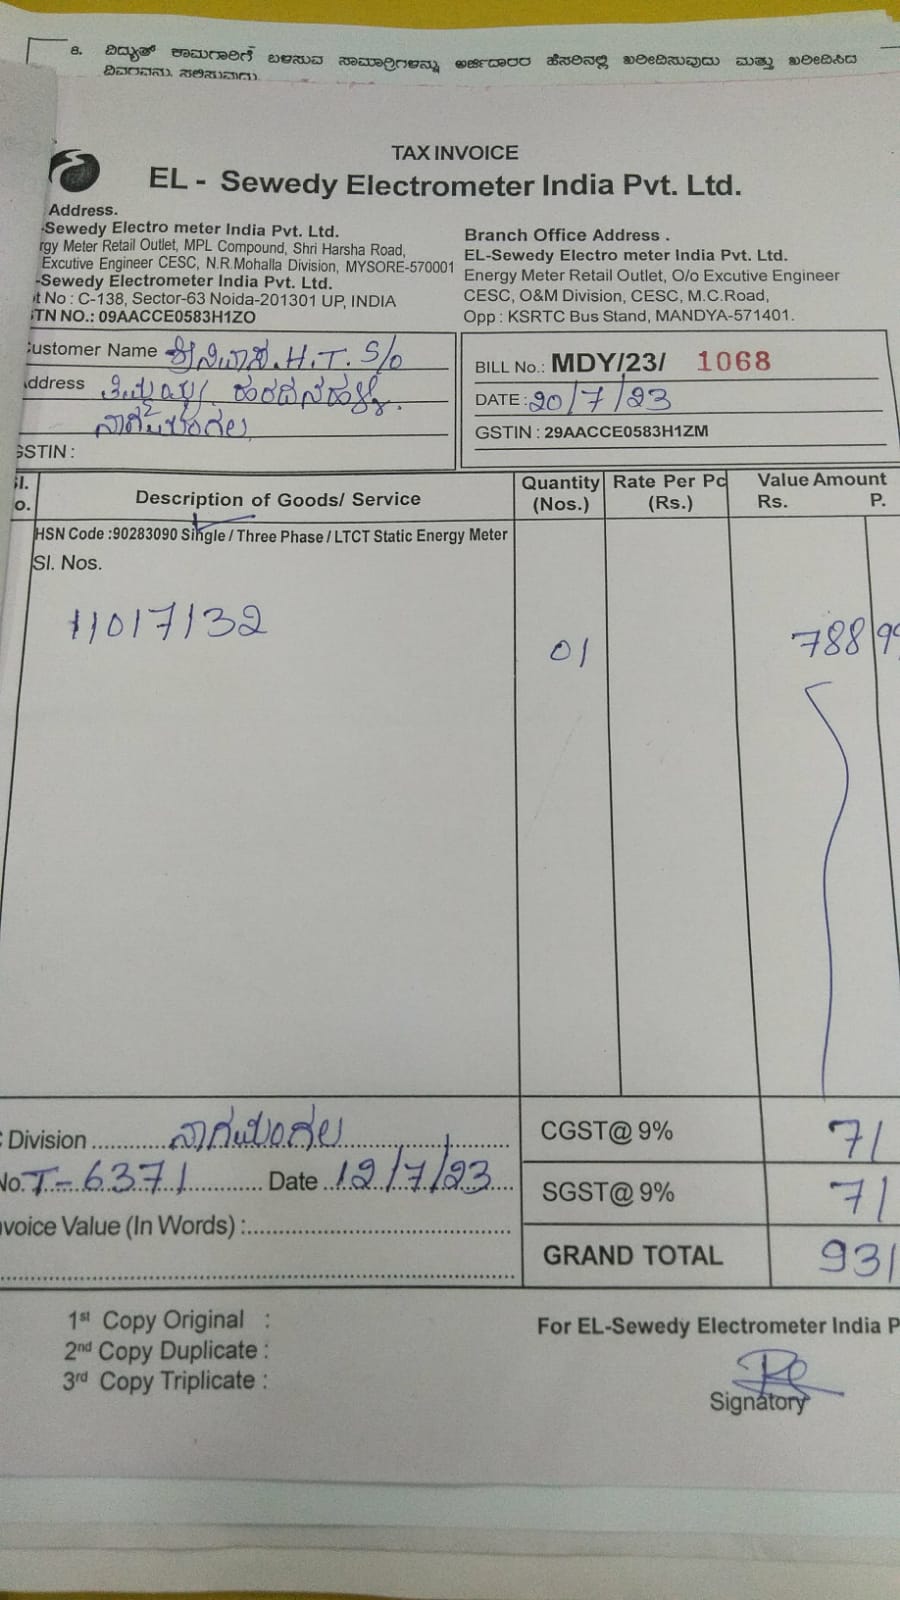 8. ವಿದ್ಯುತ್ ಕಾಮಗಾರಿಗೆ ಬಳಸುವ ಸಾಮಾಗ್ರಿಗಳನ್ನು ಅರ್ಜಿದಾರರ ಹೆಸರಿನಲ್ಲಿ ಖರೀದಿಸುವುದು ಮತ್ತು ಖರೀದಿಸಿದ
ವಿವರವನ್ನು ಸಲ್ಲಿಸುವುದು.
TAX INVOICE
EL - Sewedy Electrometer India Pvt. Ltd.
Address.
-Sewedy Electro meter India Pvt. Ltd.
rgy Meter Retail Outlet, MPL Compound, Shri Harsha Road,
Excutive Engineer CESC, N.R.Mohalla Division, MYSORE-570001
-Sewedy Electrometer India Pvt. Ltd.
t No : C-138, Sector-63 Noida-201301 UP, INDIA
TN NO.: 09AACCE0583H1ZO
Branch Office Address .
EL-Sewedy Electro meter India Pvt. Ltd.
Energy Meter Retail Outlet, O/o Excutive Engineer
CESC, O&M Division, CESC, M.C.Road,
Opp : KSRTC Bus Stand, MANDYA-571401.
ustomer Name ಶ್ರೀನಿವಾಸ. H.T. S/o
ddress
ನಾಗಮಂಗಲ
GSTIN :
BILL No.: MDY/23/ 1068
DATE : 20/7/23
GSTIN : 29AACCE0583H1ZM
Sl. No. Description of Goods/ Service Quantity (Nos.) Rate Per Pc (Rs.) Value Amount Rs. P.
HSN Code :90283090 Single / Three Phase / LTCT Static Energy Meter
Sl. Nos.
11017132 01 788 99
Division ............ ನಾಗಮಂಗಲ ............ CGST@ 9% 71
No. T-6371 ............ Date .. 12/7/23 SGST@ 9% 71
nvoice Value (In Words) :............ GRAND TOTAL 931
1st Copy Original :
2nd Copy Duplicate :
3rd Copy Triplicate :
For EL-Sewedy Electrometer India P
Signatory